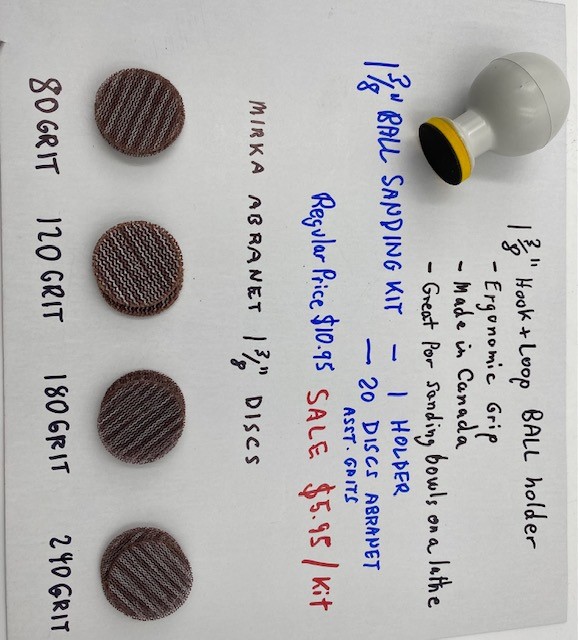 1 3/8" Hook + Loop BALL holder
- Ergonomic Grip
- Made in Canada
- Great for sanding bowls on a lathe
1 3/8" BALL SANDING KIT - 1 HOLDER
- 20 DISCS ABRANET
ASST. GRITS
Regular Price $10.95 SALE $5.95 / Kit
MIRKA ABRANET 1 3/8" DISCS
80 GRIT 120 GRIT 180 GRIT 240 GRIT